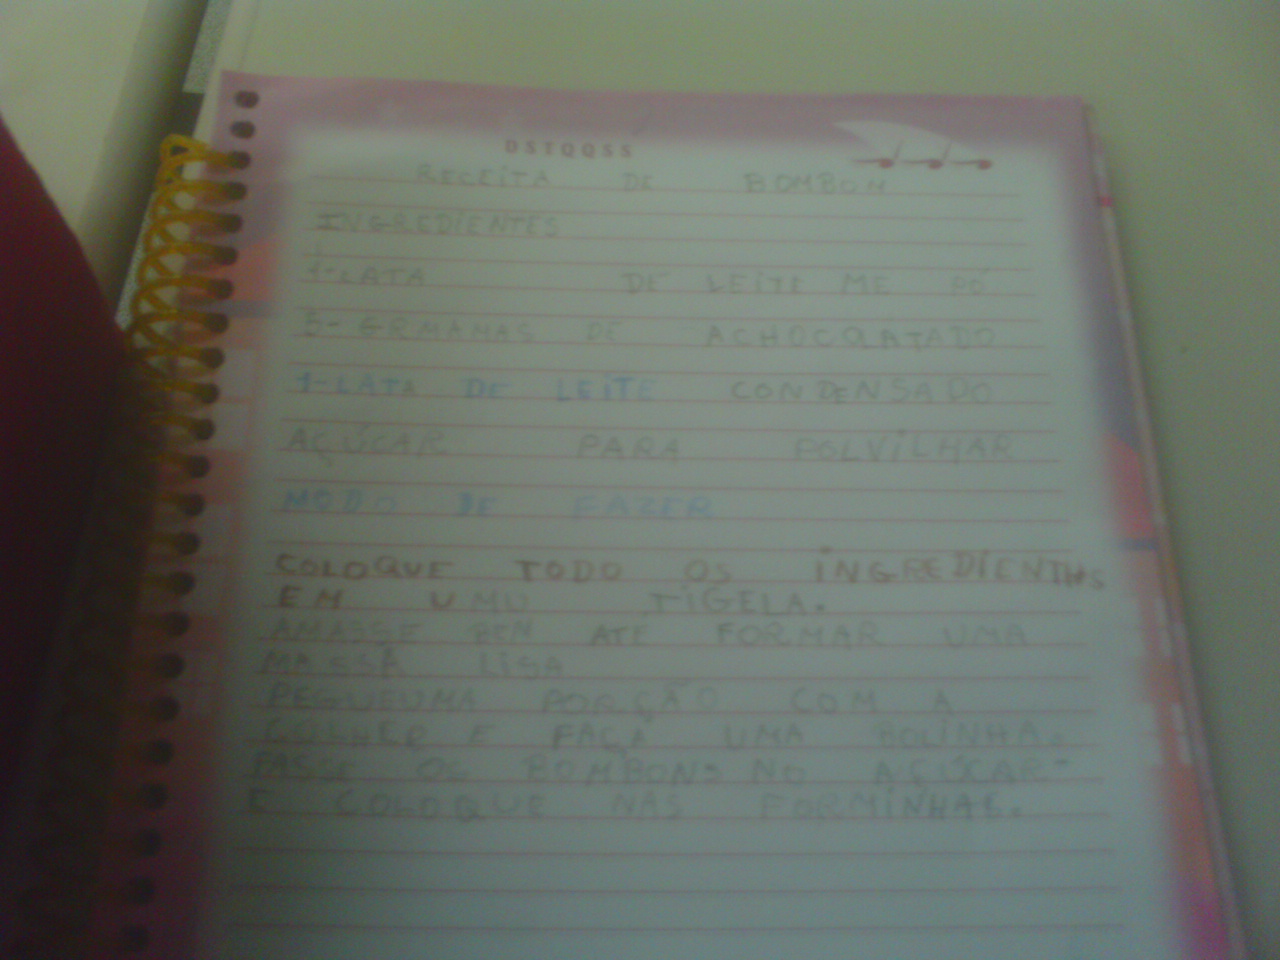 DSTQQSS
RECEITA DE BOMBOM
INGREDIENTES
1-LATA DE LEITE ME PÓ
3-GRMAMAS DE ACHOCOLATADO
1-LATA DE LEITE CONDENSADO
AÇÚCAR PARA POLVILHAR
MODO DE FAZER
COLOQUE TODO OS INGREDIENTES
EM UMU TIGELA.
AMASSE BEM ATÉ FORMAR UMA
MASSA LISA
PEGUEUMA PORÇÃO COM A
COLHER E FAÇA UMA BOLINHA.
PASSE OS BOMBONS NO AÇÚCAR-
E COLOQUE NAS FORMINHAS.